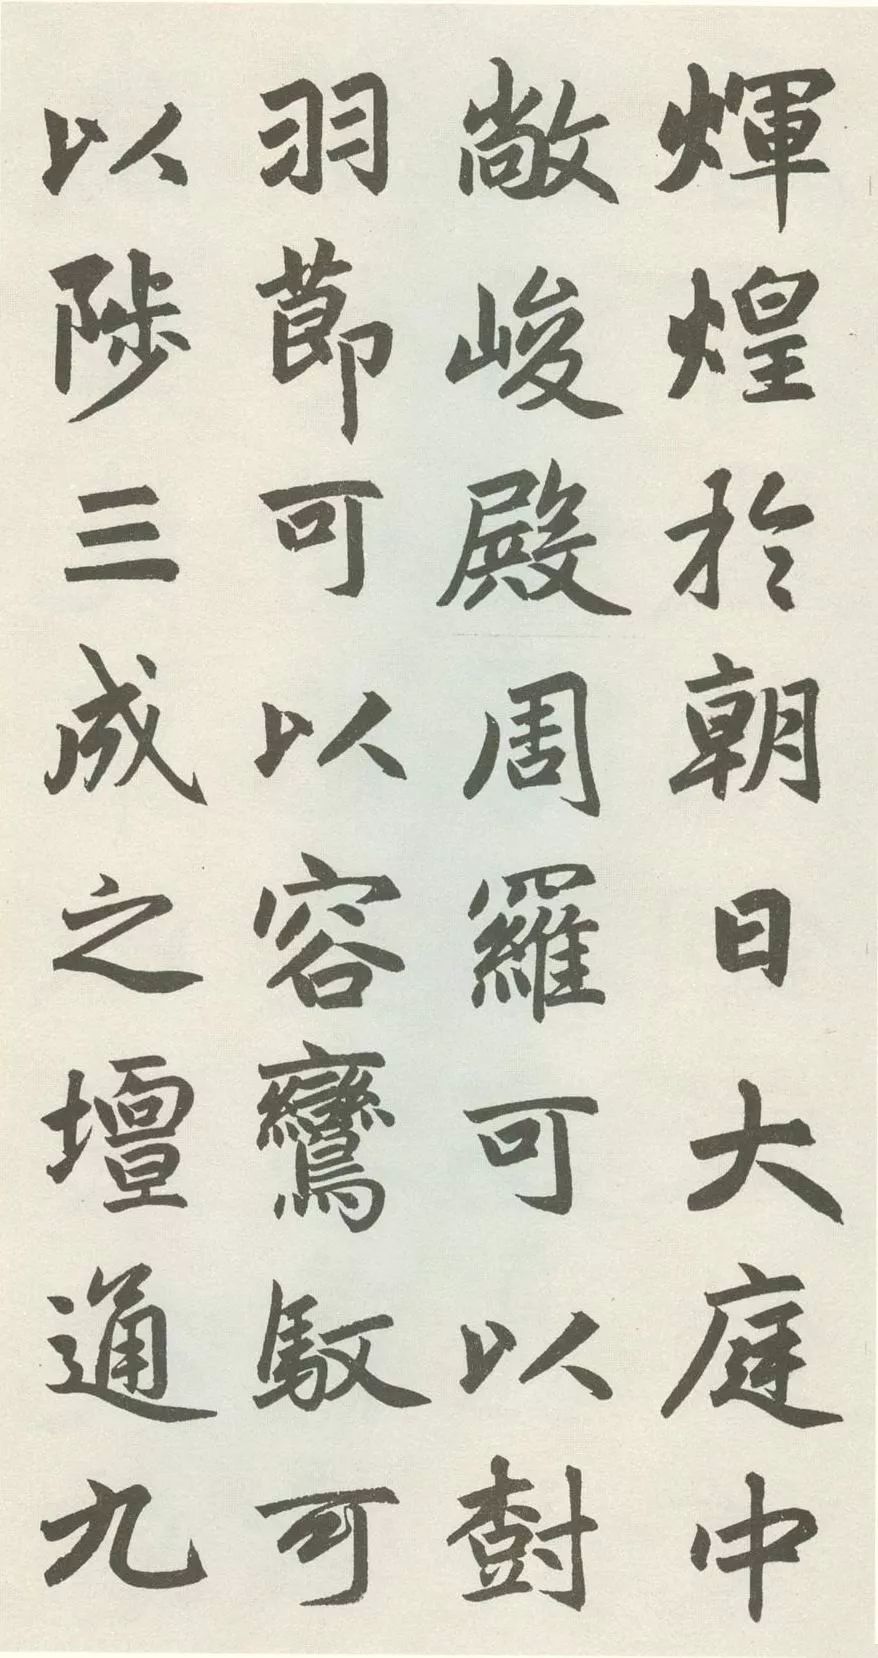 煇煌於朝日大庭中
敞峻殿周羅可以𣗳
羽莭可以容鸞馭可
以陟三成之壇通九